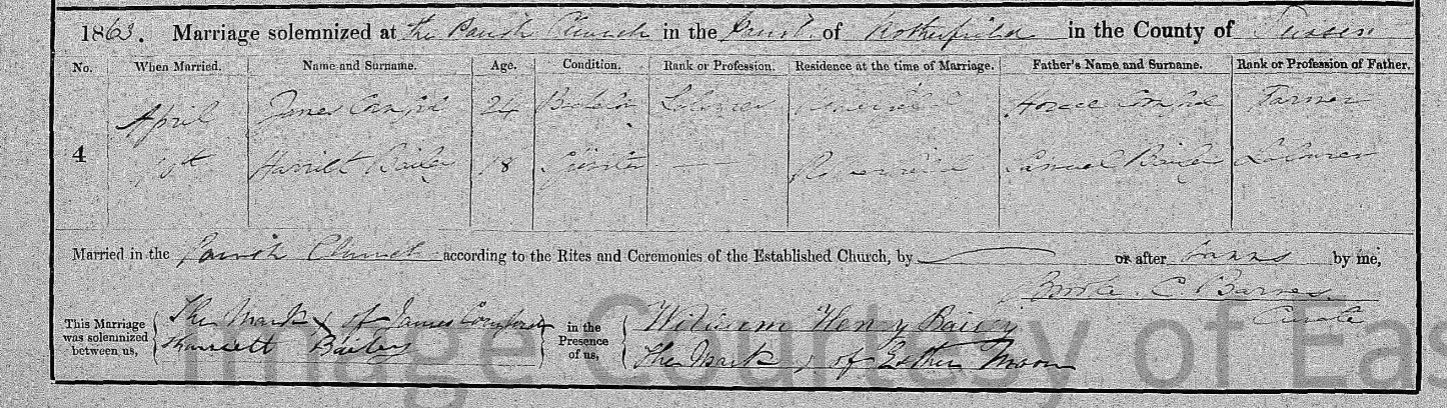 1863. Marriage solemnized at the Parish Church in the Parish of Rotherfield in the County of Sussex
No. When Married. Name and Surname. Age. Condition. Rank or Profession. Residence at the time of Marriage. Father's Name and Surname. Rank or Profession of Father.
April James 24 Bachelor Labourer Farmer
4 Harriett Bailey 18 Spinster — Rotherfield Samuel Bailey Labourer
Married in the Parish Church according to the Rites and Ceremonies of the Established Church, by or after banns by me,
C. Barnes
Curate
This Marriage was solemnized between us, The Mark x of James Comford in the Presence of us, William Henry Bailey
Harriett Bailey The Mark x of Esther Moon
Image Courtesy of Eas